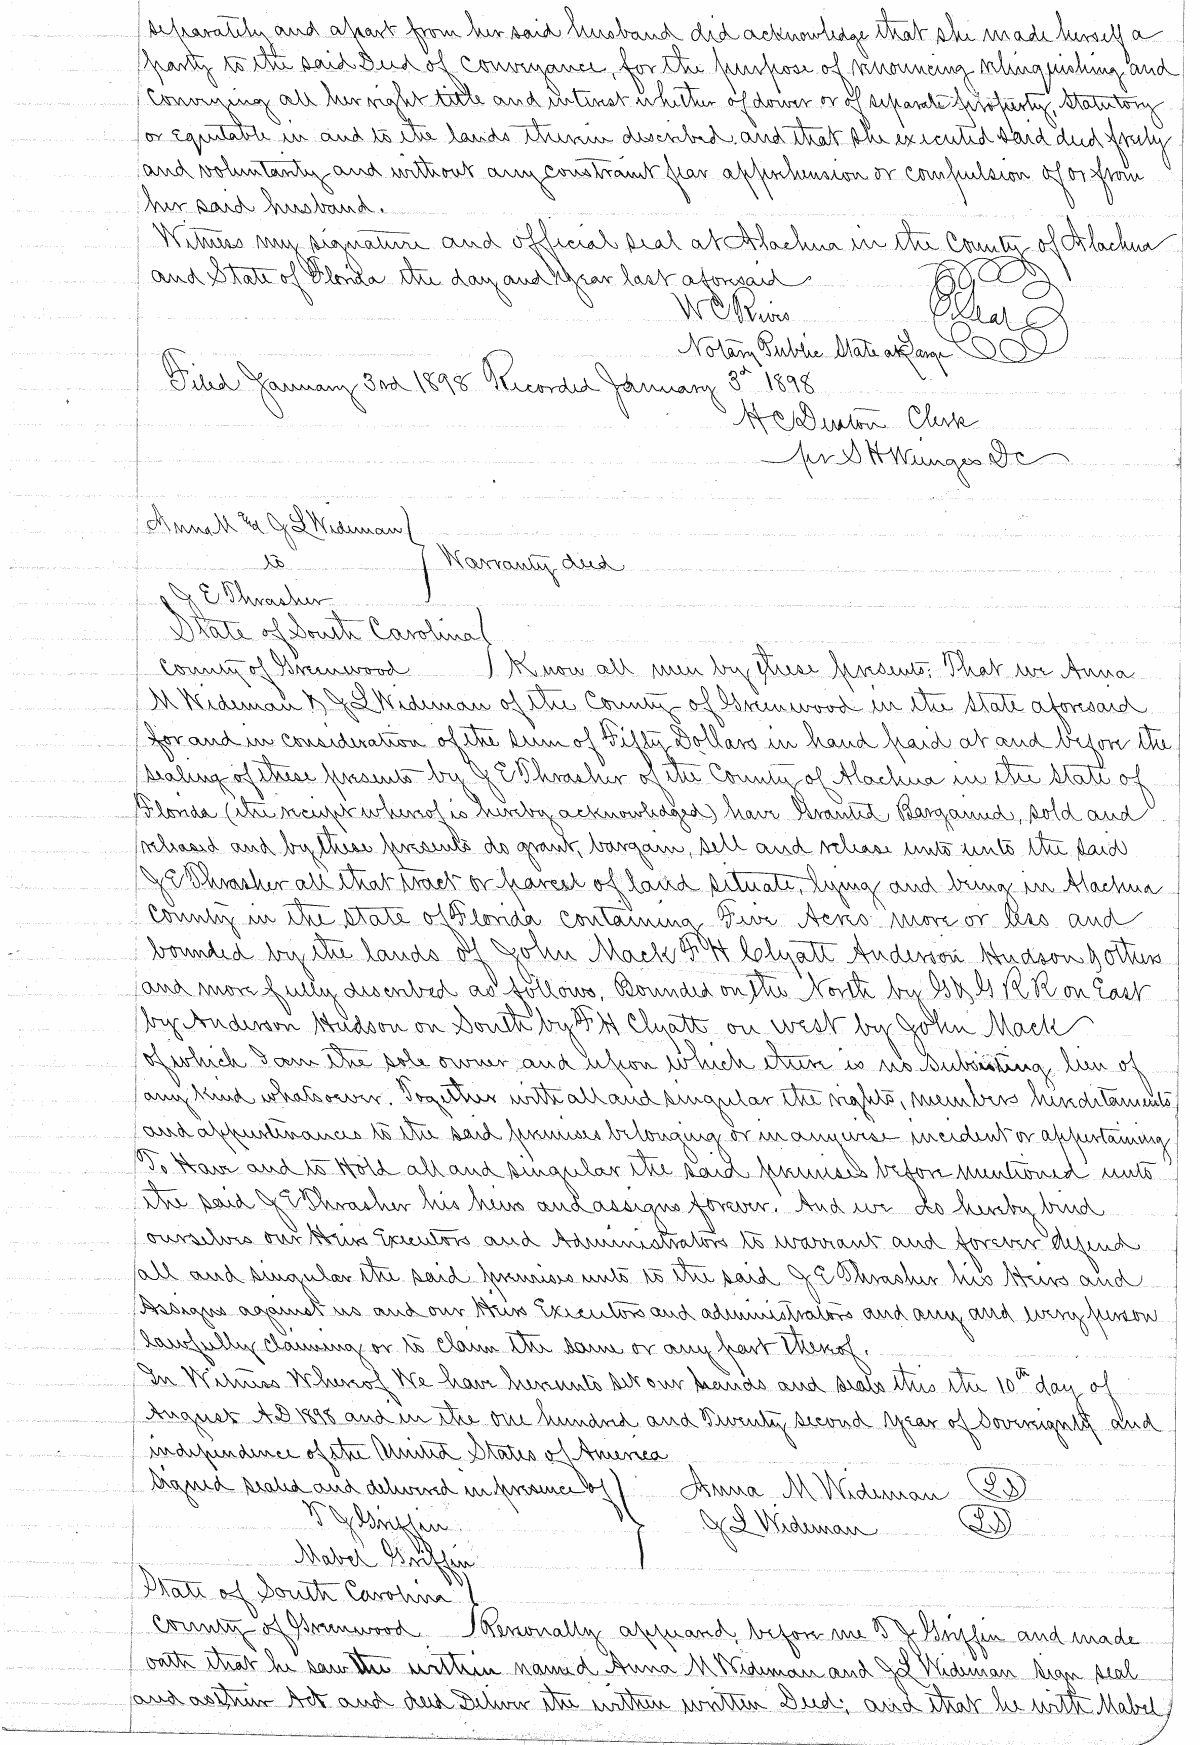 separately and apart from her said husband did acknowledge that she made herself a
party to the said Deed of Conveyance, for the purpose of renouncing relinquishing and
conveying all her right title and interest whether of dower or of separate property, statutory
or equitable in and to the lands therein described and that she executed said deed freely
and voluntarily and without any constraint fear apprehension or compulsion of or from
her said husband.
Witness my signature and official seal at Alachua in the County of Alachua
and State of Florida the day and year last aforesaid
W C Rivis
Seal
Notary Public State at Large
Filed January 3rd 1898 Recorded January 3d 1898
H C Denton Clerk
per S H Wienges D C
Anna M & J L Wideman
to
Warranty deed
J E Thrasher
State of South Carolina
County of Greenwood Know all men by these presents: That we Anna
M Wideman & J L Wideman of the County of Greenwood in the State aforesaid
for and in consideration of the sum of Fifty Dollars in hand paid at and before the
sealing of these presents by J E Thrasher of the County of Alachua in the State of
Florida (the receipt whereof is hereby acknowledged) have Granted Bargained, sold and
released and by these presents do grant, bargain, sell and release unto unto the said
J E Thrasher all that tract or parcel of land situate, lying and being in Alachua
County in the state of Florida containing Five Acres more or less and
bounded by the lands of John Mack F H Clyatt Anderson Hudson & others
and more fully described as follows, Bounded on the North by G & G R R on East
by Anderson Hudson on South by F H Clyatt on west by John Mack
of which I am the sole owner and upon which there is no subsisting lien of
any kind whatsoever. Together with all and singular the rights, members hereditaments
and appurtenances to the said premises belonging or in anywise incident or appertaining
To Have and to Hold all and singular the said premises before mentioned unto
the said J E Thrasher his heirs and assigns forever. And we do hereby bind
ourselves our Heirs Executors and Administrators to warrant and forever defend
all and singular the said premises unto to the said J E Thrasher his Heirs and
Assigns against us and our Heirs Executors and administrators and any and every person
lawfully claiming or to claim the same or any part thereof.
In Witness Whereof We have hereunto set our hands and seals this the 10th day of
August A D 1898 and in the one hundred and Twenty second year of Sovereignty and
independence of the United States of America
Signed sealed and delivered in presence of Anna M Wideman L S
T J Griffin J L Wideman L S
Mabel Griffin
State of South Carolina
County of Greenwood Personally appeared before me T J Griffin and made
oath that he saw the within named Anna M Wideman and J L Wideman sign seal
and as their Act and deed Deliver the within written Deed; and that he with Mabel